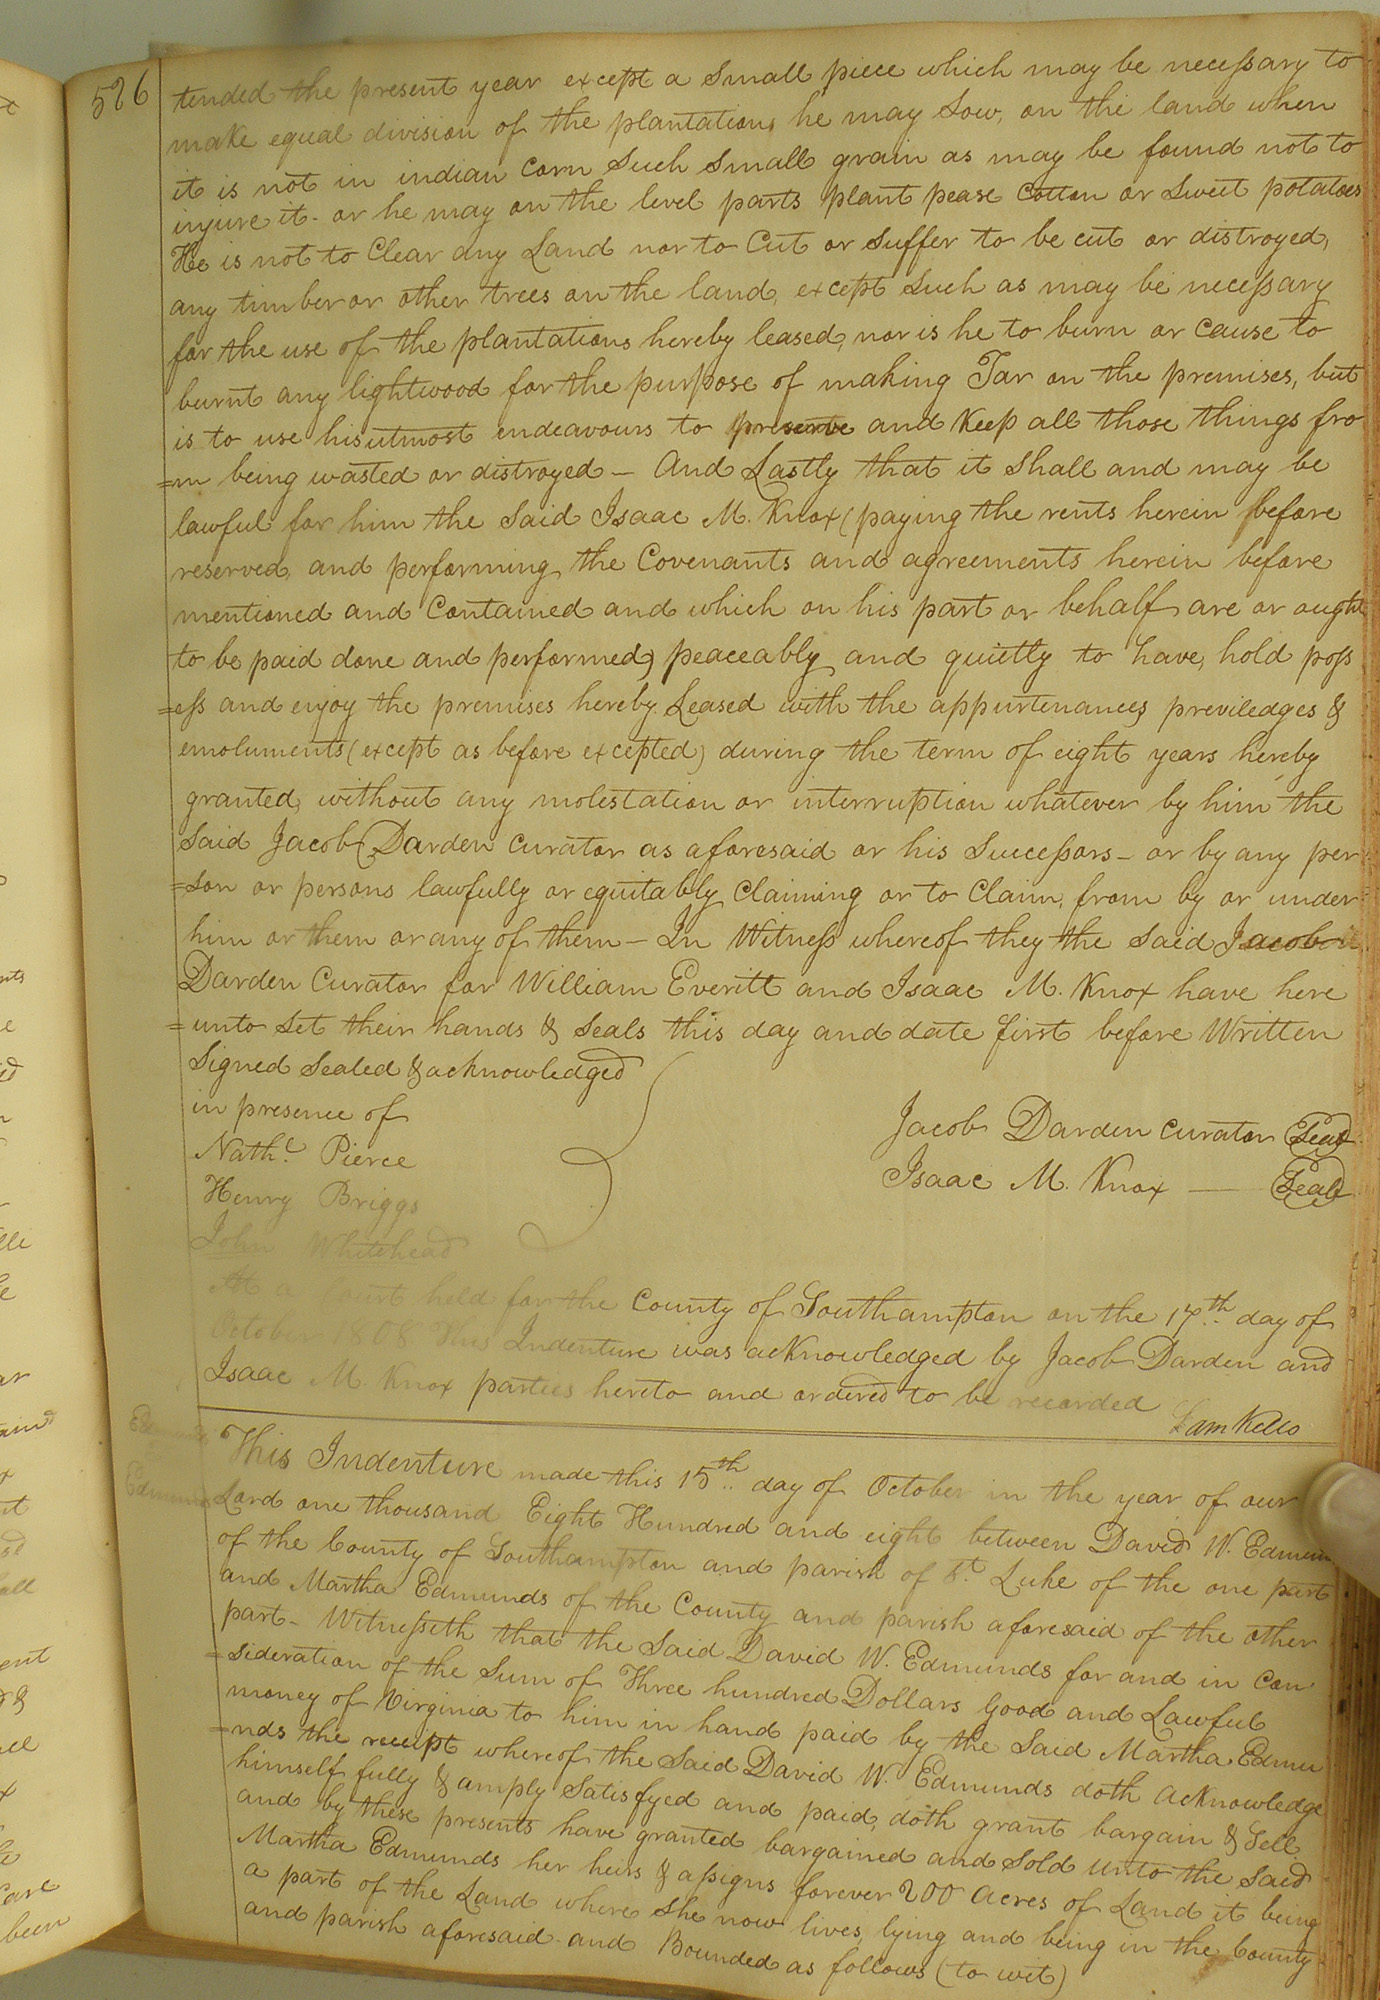 526
tended the present year except a small piece which may be necessary to
make equal division of the plantations he may sow, on the land when
it is not in indian corn such small grain as may be found not to
injure it - or he may on the level parts plant pease cotton or sweet potatoes
He is not to Clear any Land nor to Cut or suffer to be cut or distroyed,
any timber or other trees on the land, except such as may be necessary
for the use of the plantations hereby leased, nor is he to burn or cause to
burnt any lightwood for the purpose of making Tar on the premises, but
is to use his utmost endeavours to preserve and keep all those things fro
=m being wasted or distroyed - And Lastly that it shall and may be
lawful for him the said Isaac M. Knox (paying the rents herein before
reserved, and performing the Covenants and agreements herein before
mentioned and Contained and which on his part or behalf are or ought
to be paid done and performed) peaceably and quietly to have, hold poss
=ess and enjoy the premises hereby Leased with the appurtenances previledges &
emoluments (except as before excepted) during the term of eight years hereby
granted, without any molestation or interruption whatever by him the
said Jacob Darden curator as aforesaid or his Successors - or by any per
=son or persons lawfully or equitably Claiming or to Claim, from by or under
him or them or any of them - In Witness whereof they the said Jacob
Darden Curator for William Everitt and Isaac M. Knox have here
=unto set their hands & seals this day and date first before Written
Signed Sealed & acknowledged
in presence of
Nathl. Pierce
Henry Briggs
John Whitehead
Jacob Darden curator Seal
Isaac M. Knox — Seal
At a Court held for the County of Southampton on the 17.th day of
October 1808 This Indenture was acknowledged by Jacob Darden and
Isaac M. Knox parties hereto and ordered to be recorded
Sam Kello
Edmunds
Edmunds
This Indenture made this 15th day of October in the year of our
Lord one thousand Eight Hundred and eight between David W. Edmun
of the County of Southampton and parish of St. Luke of the one part
and Martha Edmunds of the County and parish aforesaid of the other
part - Witnesseth that the said David W. Edmunds for and in Con
=sideration of the Sum of Three hundred Dollars Good and Lawful
money of Virginia to him in hand paid by the said Martha Edmu
=nds the receipt whereof the said David W. Edmunds doth acknowledge
himself fully & amply satisfyed and paid, doth grant bargain & Sell
and by these presents have granted bargained and sold unto the said
Martha Edmunds her heirs & assigns forever 200 acres of Land it being
a part of the Land where she now lives, lying and being in the County
and parish aforesaid - and Bounded as follows (to wit)